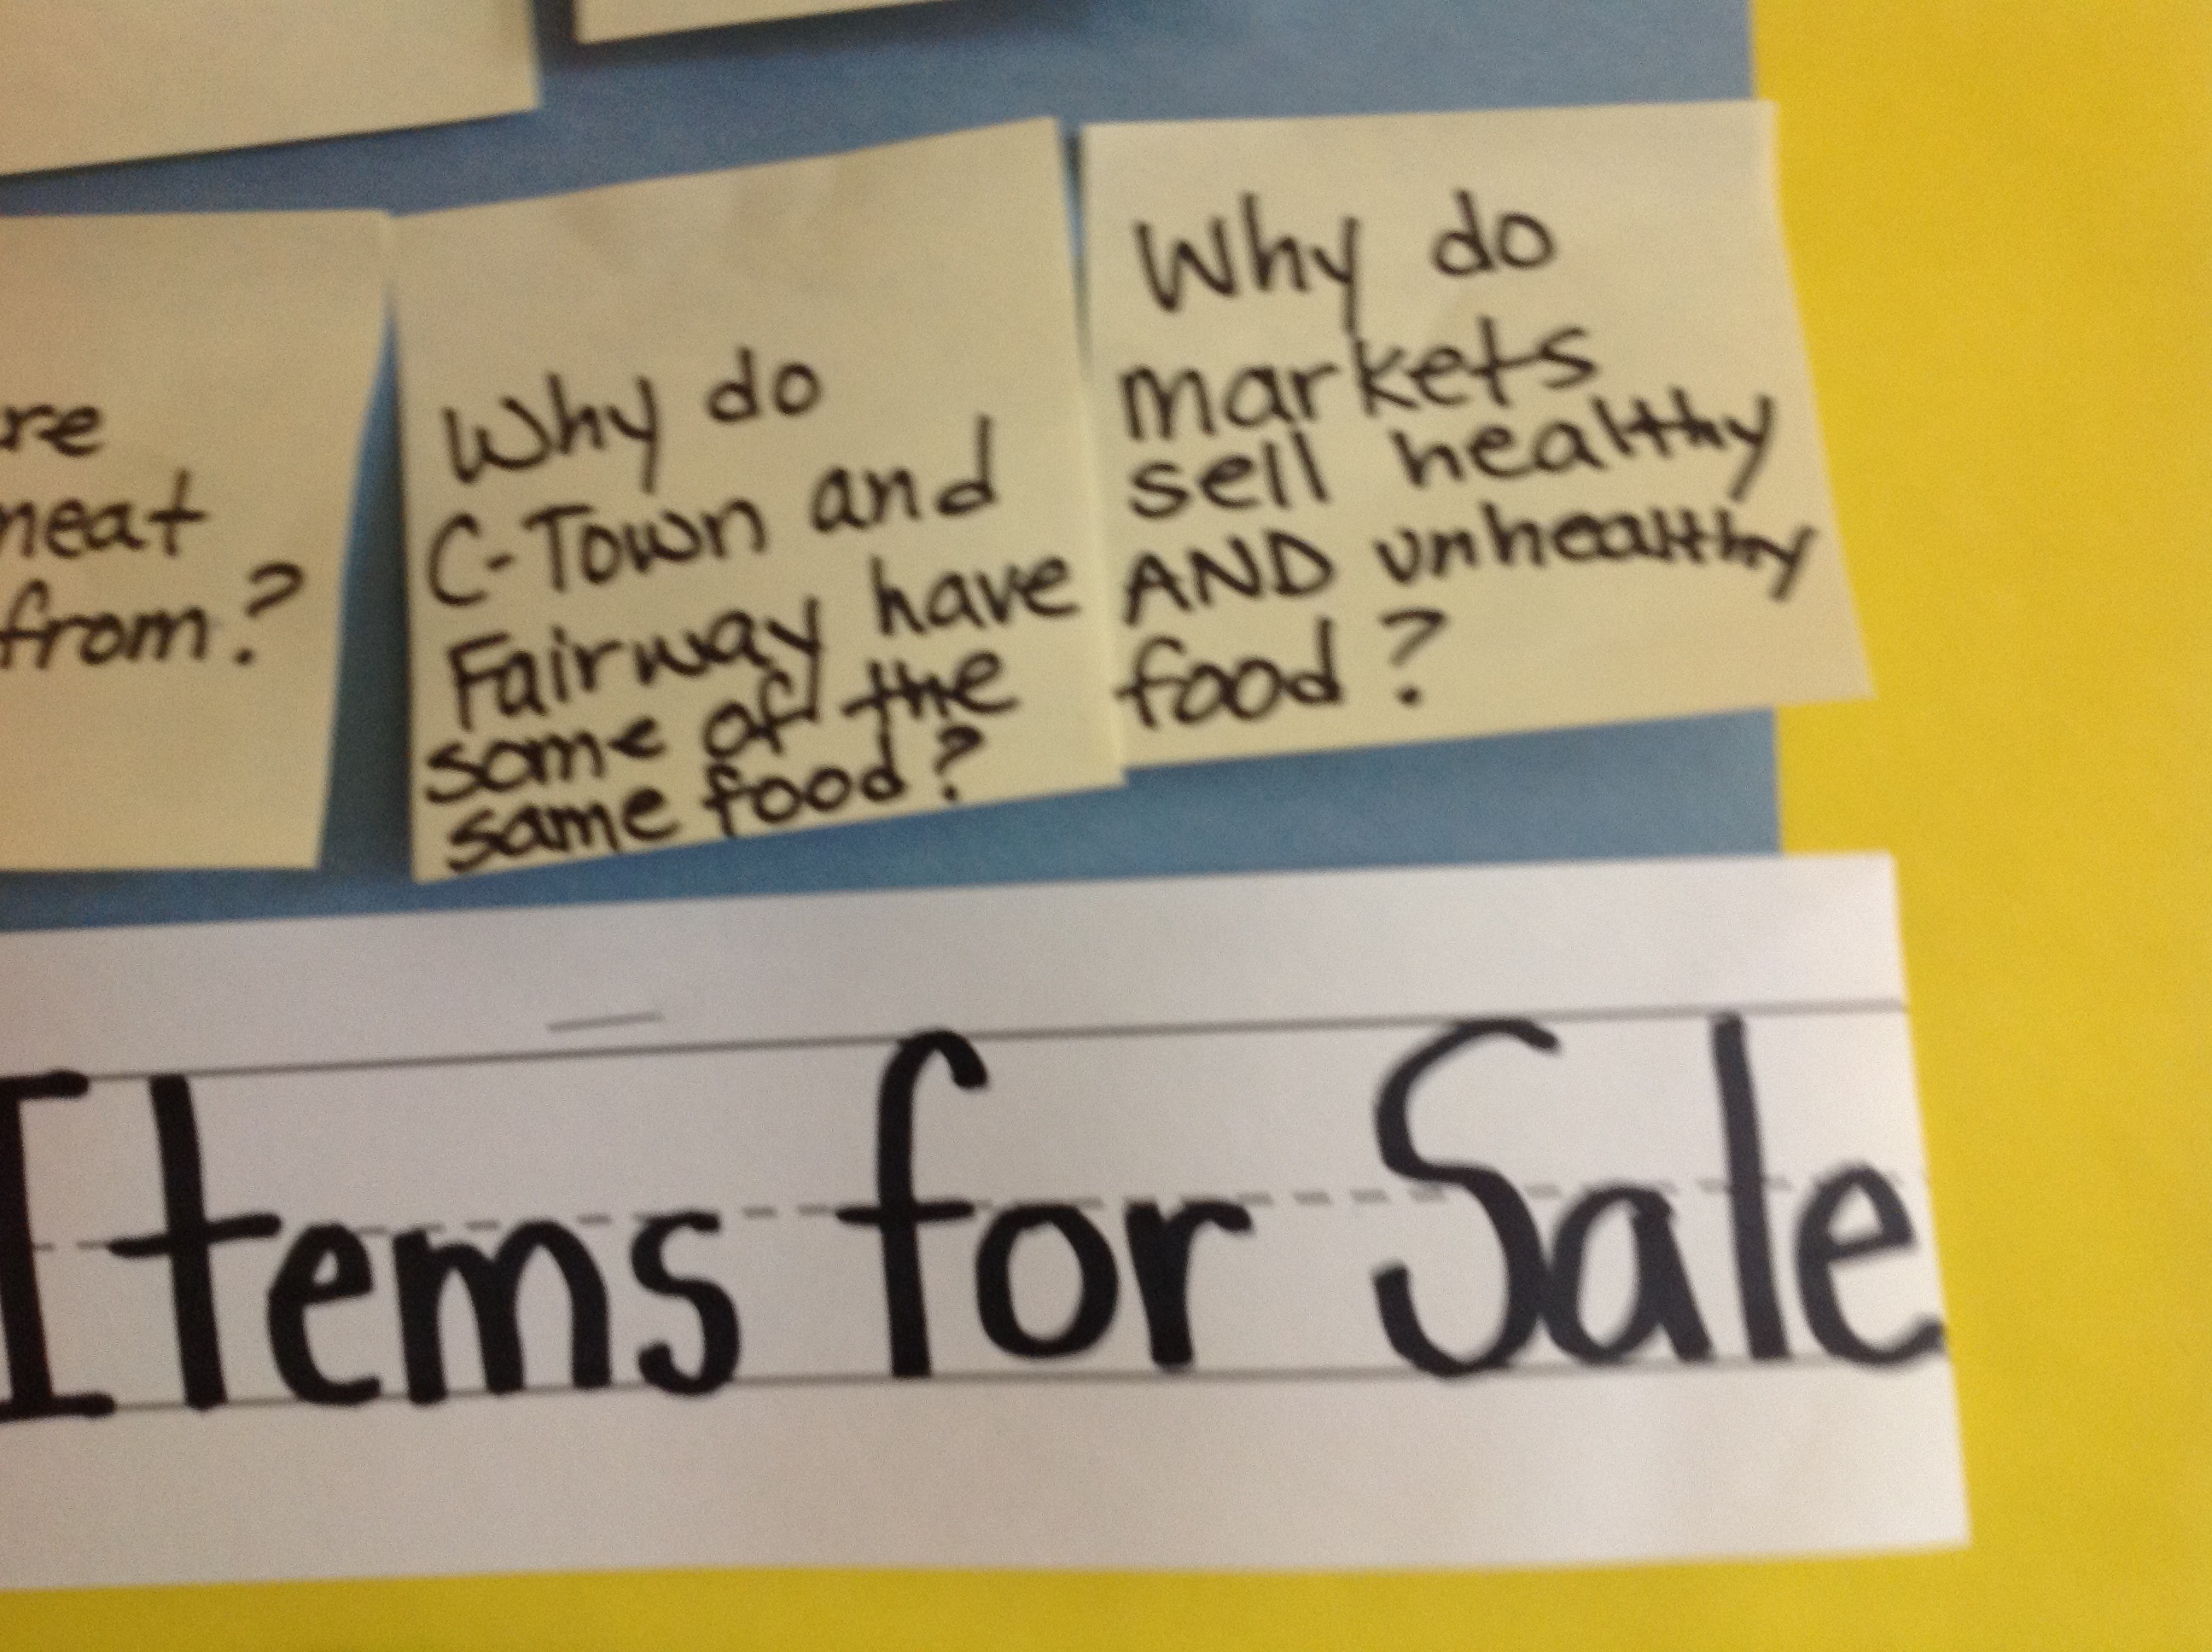 from?
Why do
C-Town and
Fairway have
some of the
same food?
Why do
markets
sell healthy
AND unhealthy
food?
Items for Sale